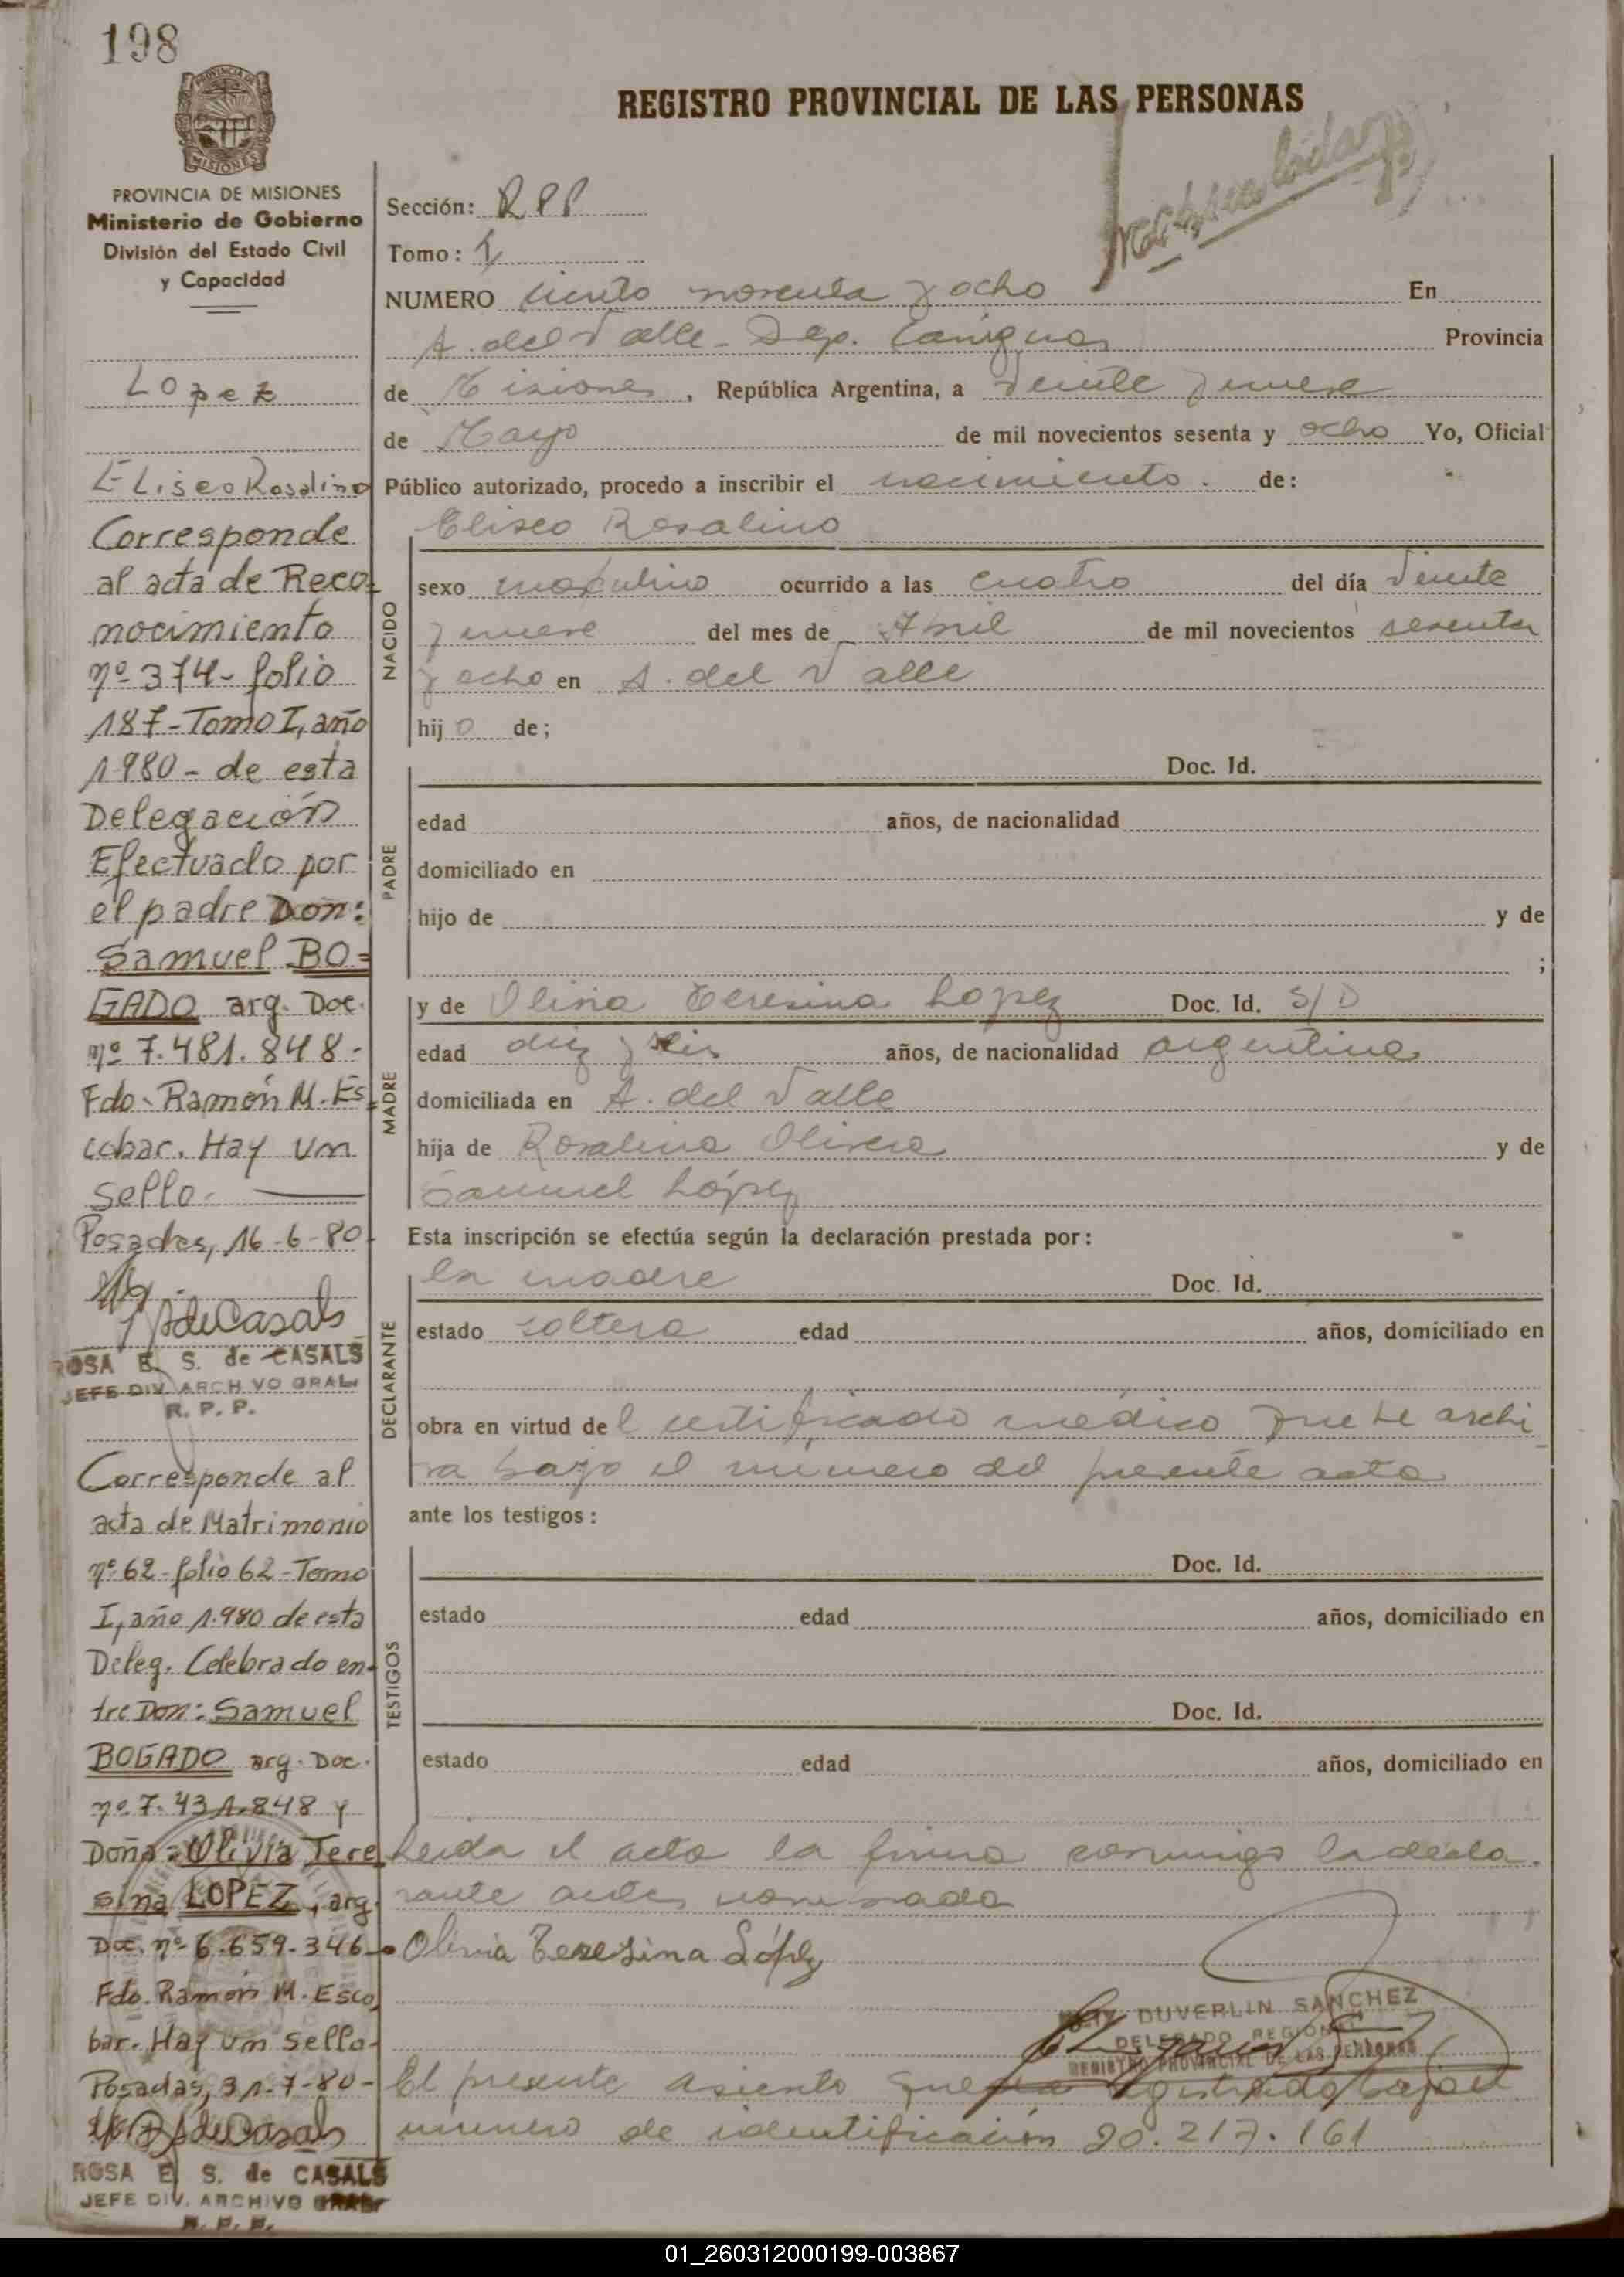 198
PROVINCIA DE
MISIONES
PROVINCIA DE MISIONES
Ministerio de Gobierno
División del Estado Civil
y Capacidad
Lopez
Eliseo Rosalino
Corresponde
al acta de Reco=
nocimiento
nº 374- folio
187-Tomo I, año
1980- de esta
Delegación
Efectuado por
el padre Don:
Samuel BO=
GADO arg. Doc.
nº 7.481.848-
Fdo. Ramón M. Es=
cobar. Hay un
sello.
Posadas, 16-6-80
ROSA E. S. de CASALS
JEFE DIV. ARCHIVO GRAL.
R. P. P.
Corresponde al
acta de Matrimonio
nº 62-folio 62-Tomo
I, año 1.980 de esta
Deleg. Celebrado en-
tre Don: Samuel
BOGADO arg. Doc.
nº 7.431.848 y
Doña: Olivia Tere
sina LOPEZ, arg.
Doc. nº 6.659.346-
Fdo. Ramón M. Esco
bar. Hay un sello-
Posadas, 31-7-80-
ROSA E. S. de CASALS
JEFE DIV. ARCHIVO GRAL.
R. P. P.
REGISTRO PROVINCIAL DE LAS PERSONAS
Sección: RPP
Tomo: 1
NUMERO ciento noventa y ocho En
A. del Valle - Dep. Cainguas Provincia
de Misiones, República Argentina, a veinte y nueve
de Mayo de mil novecientos sesenta y ocho Yo, Oficial
Público autorizado, procedo a inscribir el nacimiento. de:
Eliseo Rosalino
NACIDO
sexo masculino ocurrido a las cuatro del día veinte
y nueve del mes de Abril de mil novecientos sesenta
y ocho en A. del Valle
hijo de;
PADRE
Doc. Id.
edad años, de nacionalidad
domiciliado en
hijo de y de
;
MADRE
y de Olivia Teresina Lopez Doc. Id. S/D
edad diez y seis años, de nacionalidad argentina
domiciliada en A. del Valle
hija de Rosalina Olivera y de
Samuel López
Esta inscripción se efectúa según la declaración prestada por:
DECLARANTE
la madre Doc. Id.
estado soltera edad años, domiciliado en
obra en virtud del certificado médico que se archi
va bajo el numero del presente acta
ante los testigos:
TESTIGOS
Doc. Id.
estado edad años, domiciliado en
Doc. Id.
estado edad años, domiciliado en
Leida el acta la firma conmigo la decla-
rante antes nombrada
Olivia Teresina López
DUVERLIN SANCHEZ
DELEGADO REGIONAL
REGISTRO PROVINCIAL DE LAS PERSONAS
El presente asiento queda registrado bajo el
numero de identificación 20.217.161
01_260312000199-003867